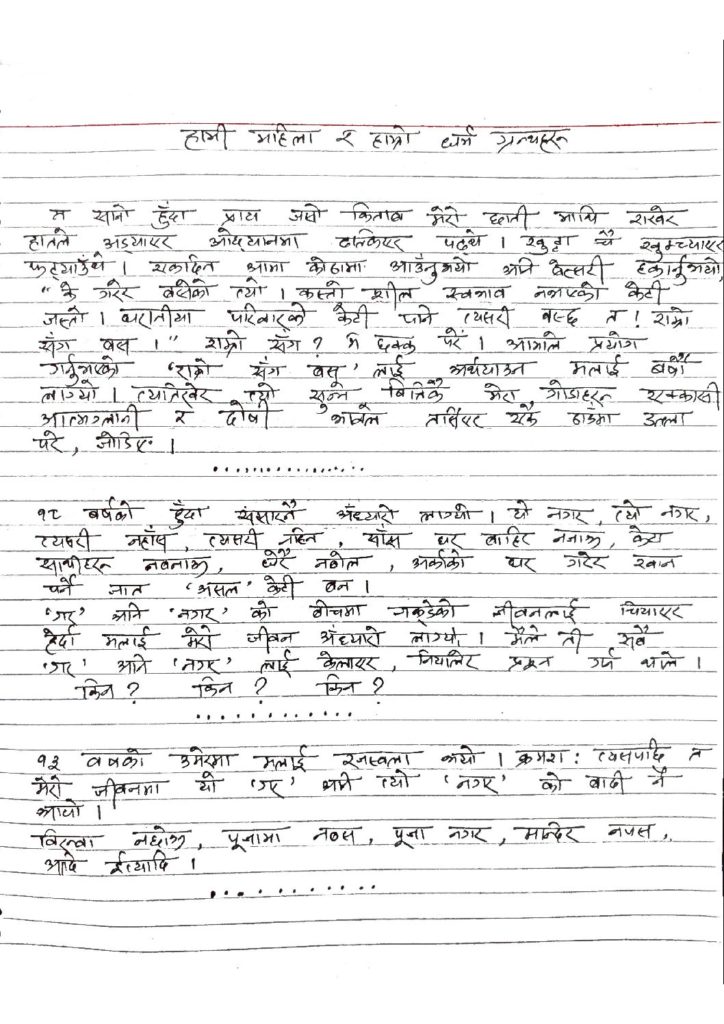 हामी महिला र हाम्रो धर्म ग्रन्थहरू
म सानो हुँदा प्राय जसो किताब मेरो छाती माथि राखेर
हातले अड्याएर ओछ्यानमा ढल्किएर पढ्थे । खुट्टा चै खुम्च्याएर
फट्याउँथे । एकदिन आमा कोठामा आउँनुभयो अनि बेस्सरी हकार्नुभयो,
"के गरेर बसेको त्यो । कस्तो शील स्वभाव नभएको केटी
जस्तो । घरातीया परिवारको केटी पनि त्यसरी बस्छ त ! राम्रो
सँग बस ।" राम्रो सँग ? म छक्क परें । आमाले प्रयोग
गर्नुभएको 'राम्रो सँग बस' लाई अर्थ्याउन मलाई बर्षौ
लाग्यो । त्यतिखेर त्यो सुन्न बित्तिकै मेरा गोडाहरू एक्कासी
आत्मग्लानी र दोषी भावले तर्सिएर एकै ठाउँमा डल्ला
परे, जोडिए ।
. . . . . . . . . . . . . . . .
१८ बर्षको हुँदा संसारनै अँध्यारो लाग्यो । यो नगर, त्यो नगर,
त्यसरी नहाँस, त्यसरी नहिन, साँस घर बाहिर नजाऊ, केटा
साथीहरू नबनाऊ, धेरै नबोल, अर्काको घर गरेर खान
पर्ने जात 'असल' केटी बन ।
'गर' अनि 'नगर' को बीचमा गुज्रेको जीवनलाई चियाएर
हेर्दा मलाई मेरो जीवन अँध्यारो लाग्यो । मैले ती सबै
'गर' अनि 'नगर' लाई केलाएर, नियालेर प्रश्न गर्न थाले ।
किन ? किन ? किन ?
. . . . . . . . . . .
१३ बर्षको उमेरमा मलाई रजस्वला भयो । क्रमश: त्यसपछि त
मेरो जीवनमा यो 'गर' अनि त्यो 'नगर' को बाढी नै
आयो ।
बिरुवा नछोऊ, पूजामा नबस, पूजा नगर, मन्दिर नपस,
आदि ईत्यादि ।
. . . . . . . . . . .